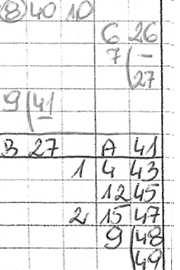 ⑧ 40 10
6 26
7 ( –
27
9 ( 41
B 27 A 41
1 4 43
12 45
2 15 47
9 48
49